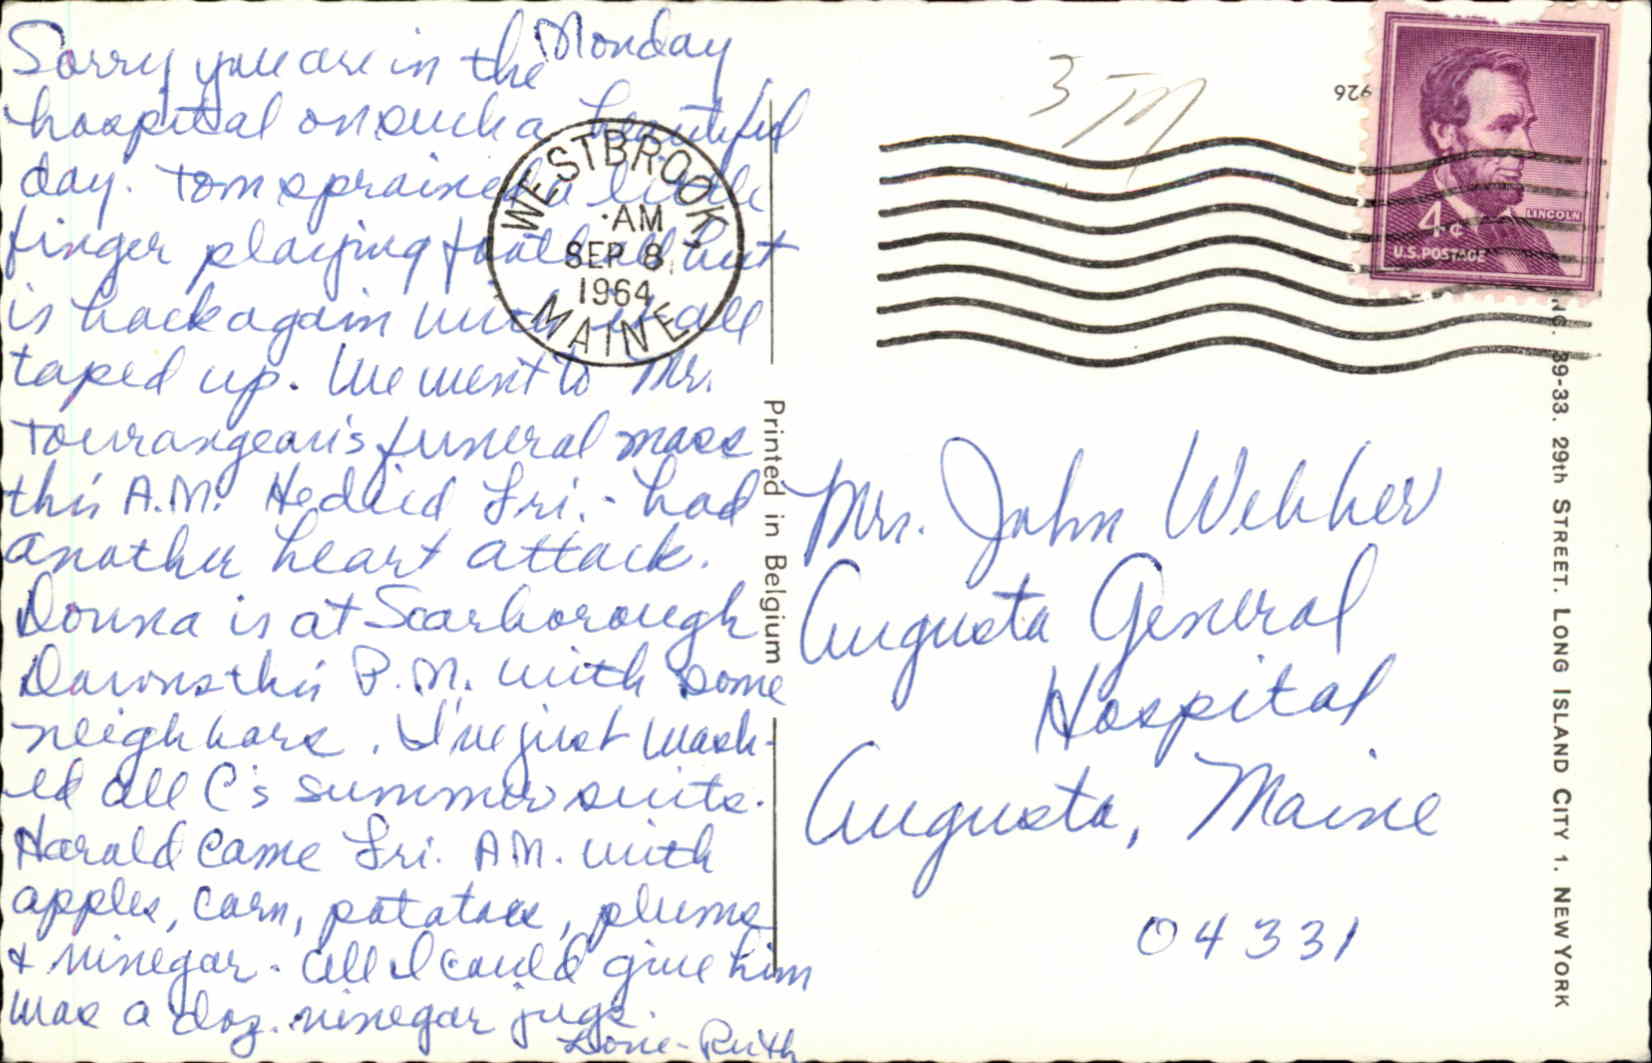 Monday
Sorry you are in the
hospital on such a beautiful
day. Tom sprained a little
finger playing football but
is back again with it all
taped up. We went to Mr.
Tourangeau's funeral mass
this A.M. He died Fri. - had
another heart attack.
Donna is at Scarborough
Downs this P.M. with some
neighbors. I've just wash-
ed all C's summer suits.
Harold came Fri. A.M. with
apples, corn, potatoes, plums
& vinegar - all I could give him
was a doz. vinegar jugs.
Love - Ruth
WESTBROOK,
AM
SEP 8
1964
MAINE
Printed in Belgium
3 M
926
4c
LINCOLN
U.S. POSTAGE
Mrs. John Webber
Augusta General
Hospital
Augusta, Maine
04331
NC. 39-33. 29th STREET. LONG ISLAND CITY 1. NEW YORK